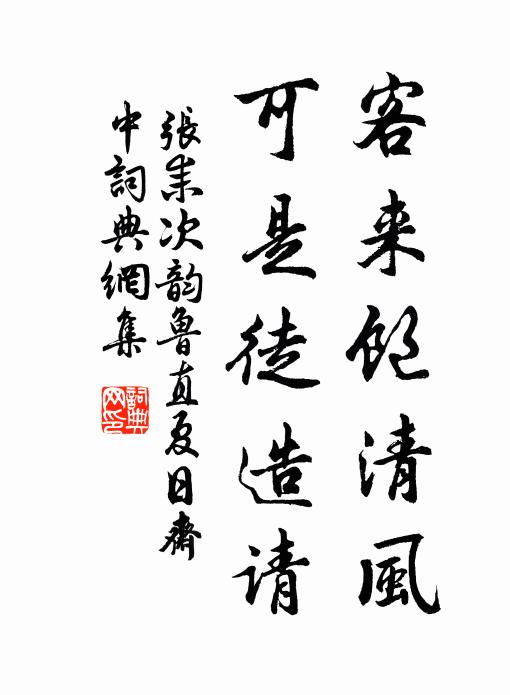 客来饱清風
可是徒造请
張耒次韵魯直夏日齋
中詞典網集
詞典网印